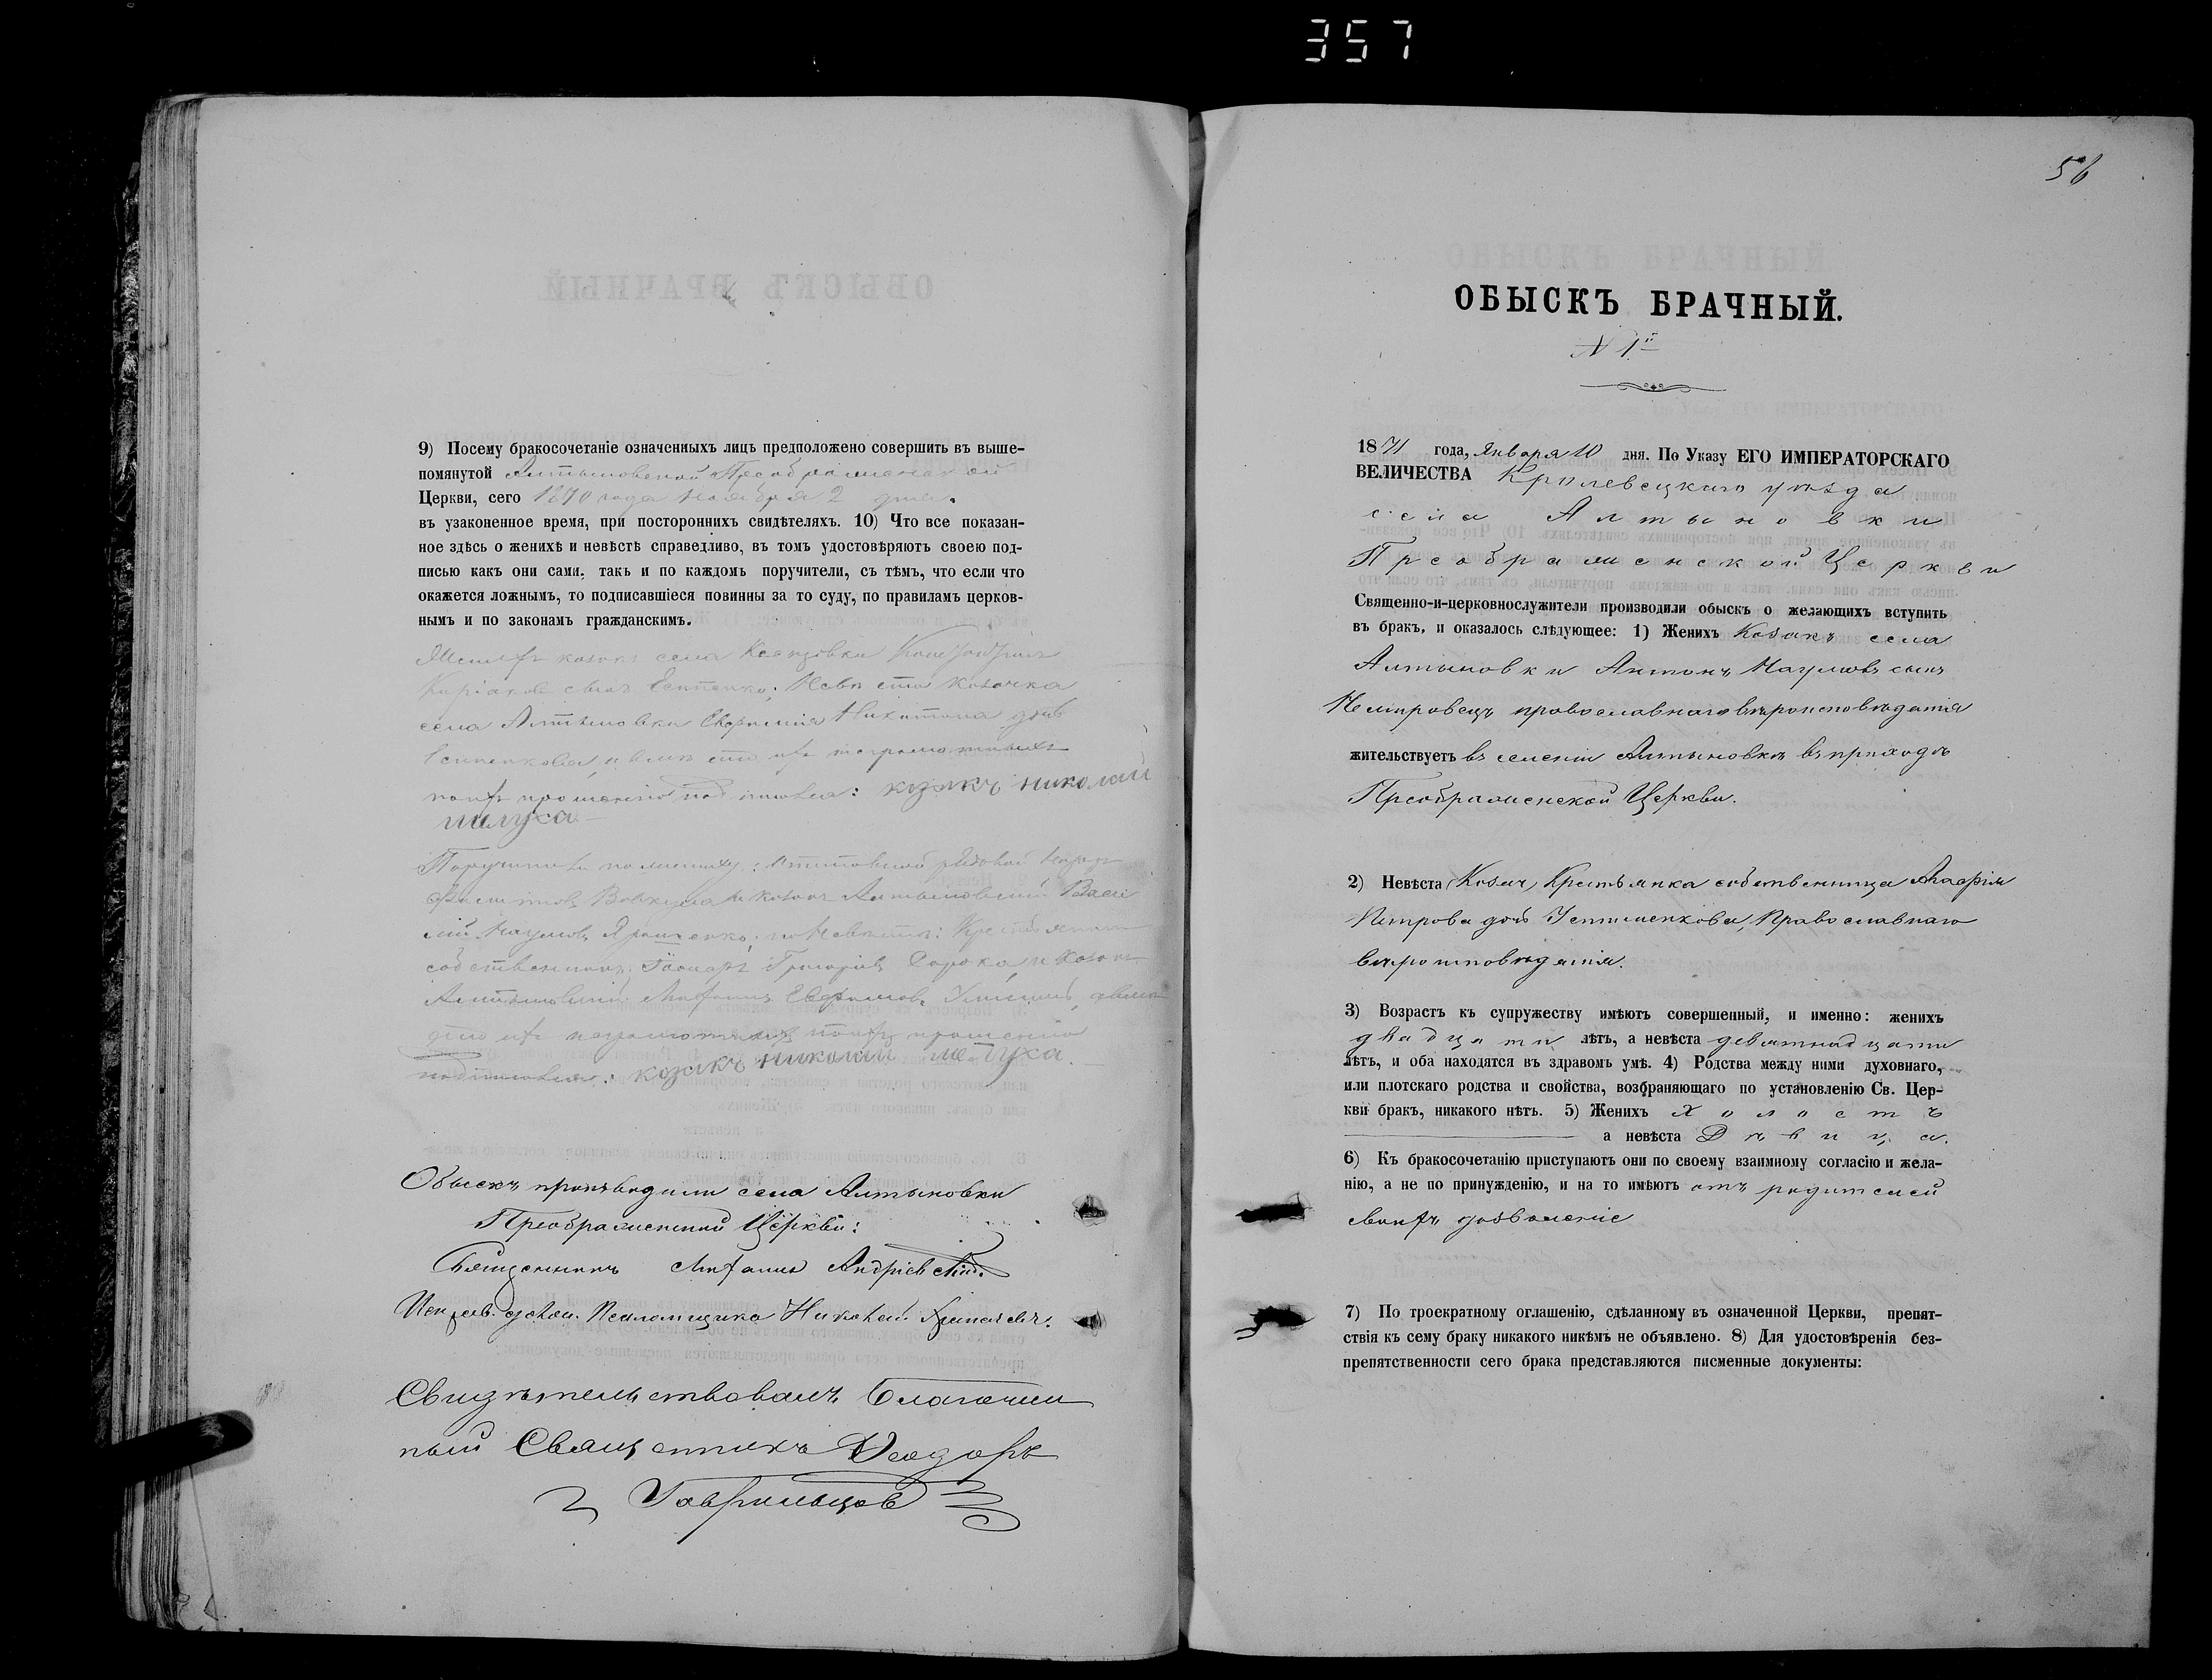 357
9) Посему бракосочетаніе означенныхъ лицъ предположено совершить въ выше-
помянутой Алтыновской Преображенской
Церкви, сего 1870 года Ноября 2 дня.
въ узаконенное время, при постороннихъ свидѣтеляхъ. 10) Что все показан-
ное здѣсь о женихѣ и невѣстѣ справедливо, въ томъ удостовѣряютъ своею под-
писью какъ они сами, такъ и по каждомъ поручители, съ тѣмъ, что если что
окажется ложнымъ, то подписавшіеся повинны за то суду, по правиламъ церков-
нымъ и по законамъ гражданскимъ.
Женихъ козакъ села
сынъ Невѣста козачка
села Алтыновки Никитина дочь
а вмѣсто ихъ неграмотныхъ
по ихъ прошенію подписался: козакъ николай
шелуха
Поручители по женихѣ: рядовой
и козакъ Алтыновскій Васи
лій Наумовъ по Невѣстѣ:
собственникъ Григоріевъ Сорока и козакъ
Алтыновскій
ихъ неграмотныхъ по ихъ прошенію
подписался: козакъ николай шелуха.
Обыскъ производили села Алтыновки
Преображенской Церкви:
Священникъ Андріевскій.
должн. Псаломщика Николай
Свидѣтельствовалъ Благочин
ный Священникъ Ѳеодоръ
Гаврильцовъ
56
ОБЫСКЪ БРАЧНЫЙ.
N 1й
1871 года, Января 10 дня. По Указу ЕГО ИМПЕРАТОРСКАГО
ВЕЛИЧЕСТВА Кролевецкаго уѣзда
села Алтыновки
Преображенской Церкви
Священно-и-церковнослужители производили обыскъ о желающихъ вступить
въ бракъ, и оказалось слѣдующее: 1) Женихъ Козакъ села
Алтыновки Антонъ Наумовъ сынъ
православнаго вѣроисповѣданія
жительствуетъ въ селеніи Алтыновкѣ въ приходѣ
Преображенской Церкви.
2) Невѣста Крестьянка собственница Агафія
Петрова дочь Православнаго
вѣроисповѣданія.
3) Возрастъ къ супружеству имѣютъ совершенный, и именно: женихъ
двадцати лѣтъ, а невѣста девятнадцати
лѣтъ, и оба находятся въ здравомъ умѣ. 4) Родства между ними духовнаго,
или плотскаго родства и свойства, возбраняющаго по установленію Св. Цер-
кви бракъ, никакого нѣтъ. 5) Женихъ Холостъ
а невѣста Дѣвица.
6) Къ бракосочетанію приступаютъ они по своему взаимному согласію и жела-
нію, а не по принужденію, и на то имѣютъ отъ родителей
своихъ дозволеніе
7) По троекратному оглашенію, сдѣланному въ означенной Церкви, препят-
ствія къ сему браку никакого никѣмъ не объявлено. 8) Для удостовѣренія без-
препятственности сего брака представляются писменные документы: